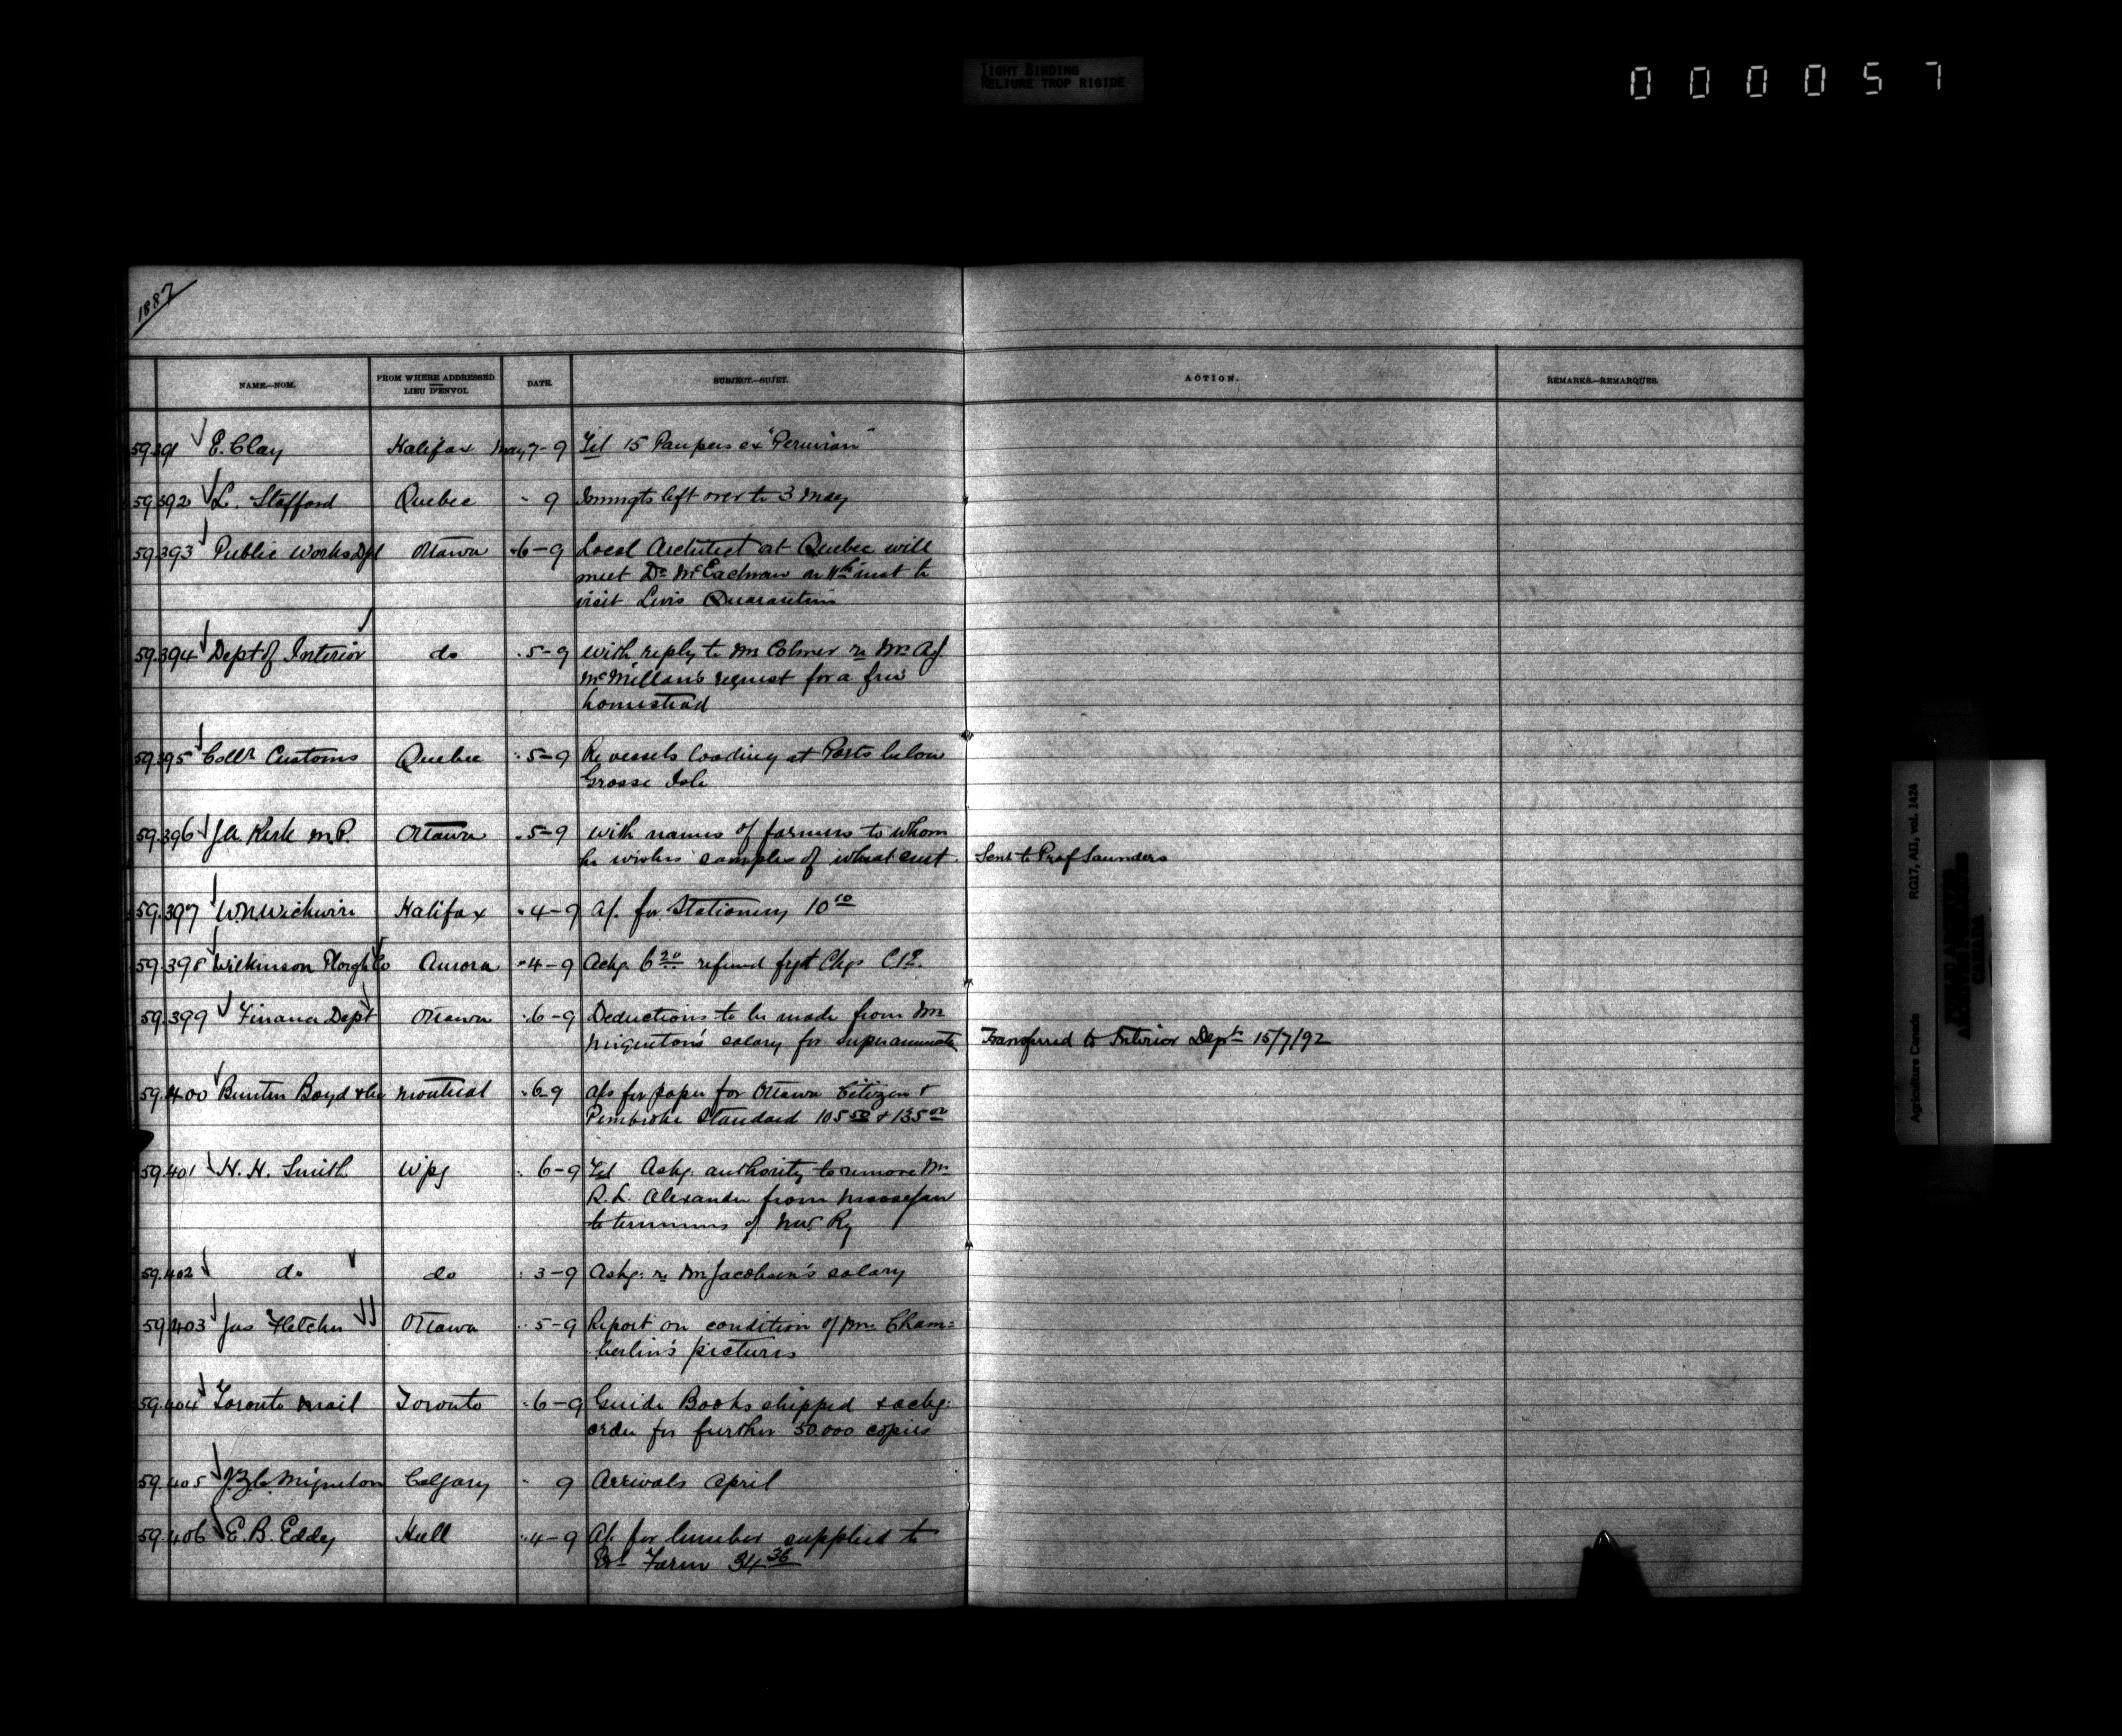 TIGHT BINDING
RELIURE TROP RIGIDE
000057
1887
NAME.—NOM. FROM WHERE ADDRESSED LIEU D'ENVOI. DATE. SUBJECT.—SUJET. ACTION. REMARKS.—REMARQUES.
59.391 E. Clay Halifax May 7-9 Tel 15 Paupers ex "Peruvian"
59.392 L. Stafford Quebec " 9 Immigts left over to 3 May
59.393 Public Works Dpt Ottawa " 6-9 Local Architect at Quebec will
meet Dr McEachran on 11th inst to
visit Levis Quarantine
59.394 Dept of Interior do " 5-9 with reply to Mr Colmer re Mr A.J.
McMillan's request for a free
homestead
59.395 Collr Customs Quebec " 5-9 Re vessels loading at Ports below
Grosse Isle
59.396 J.A. Kirk M.P. Ottawa " 5-9 with names of farmers to whom
he wishes samples of wheat sent. Sent to Prof Saunders
59.397 W.N. Wickwire Halifax " 4-9 A/c for Stationery 10 10
59.398 Wilkinson Plough Co Aurora " 4-9 Ackg. 6 20 refund fgt Chgs
59.399 Finance Dept Ottawa " 6-9 Deductions to be made from Mr
Miquelon's salary for superannuatn Transferred to Interior Dept 15/7/92
59.400 Buntin Boyd & Co Montreal " 6-9 A/cs for paper for Ottawa Citizen &
Pembroke Standard 105 50 & 135 00
59.401 H. H. Smith Wpg " 6-9 Tel Askg. authority to remove Mr
R.L. Alexander from Moosejaw
to terminus of N.W. Ry
59.402 do do " 3-9 Askg. re Mr Jacobsen's salary
59.403 Jas Fletcher Ottawa " 5-9 Report on condition of Mrs Cham=
berlin's pictures
59.404 Toronto Mail Toronto " 6-9 Guide Books shipped & ackg.
order for further 50.000 copies
59.405 J.Z.C. Miquelon Calgary " 9 Arrivals April
59.406 E.B. Eddy Hull " 4-9 A/c for lumber supplied to
Exl Farm 34 36
Agriculture Canada RG17, AII, vol. 1424